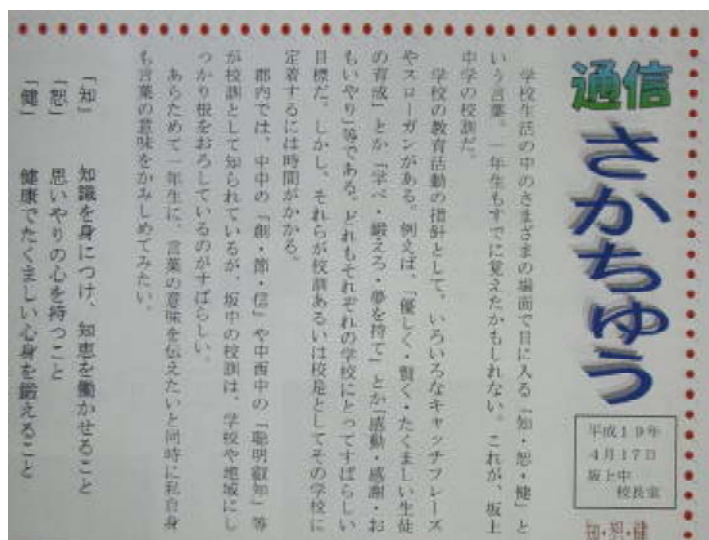 通信
さかちゅう
平成19年
4月17日
坂上中
校長室
知・恕・健
学校生活の中のさまざまの場面で目に入る「知・恕・健」と
いう言葉。一年生もすでに覚えたかもしれない。これが、坂上
中学の校訓だ。
学校の教育活動の指針として、いろいろなキャッチフレーズ
やスローガンがある。例えば、「優しく・賢く・たくましい生徒
の育成」とか「学べ・鍛えろ・夢を持て」とか「感動・感謝・お
もいやり」等である。どれもそれぞれの学校にとってすばらしい
目標だ。しかし、それらが校訓あるいは校是としてその学校に
定着するには時間がかかる。
郡内では、中中の「創・節・信」や中西中の「聡明叡知」等
が校訓として知られているが、坂中の校訓は、学校や地域にし
っかり根をおろしているのがすばらしい。
あらためて一年生に、言葉の意味を伝えたいと同時に私自身
も言葉の意味をかみしめてみたい。
「知」 知識を身につけ、知恵を働かせること
「恕」 思いやりの心を持つこと
「健」 健康でたくましい心身を鍛えること